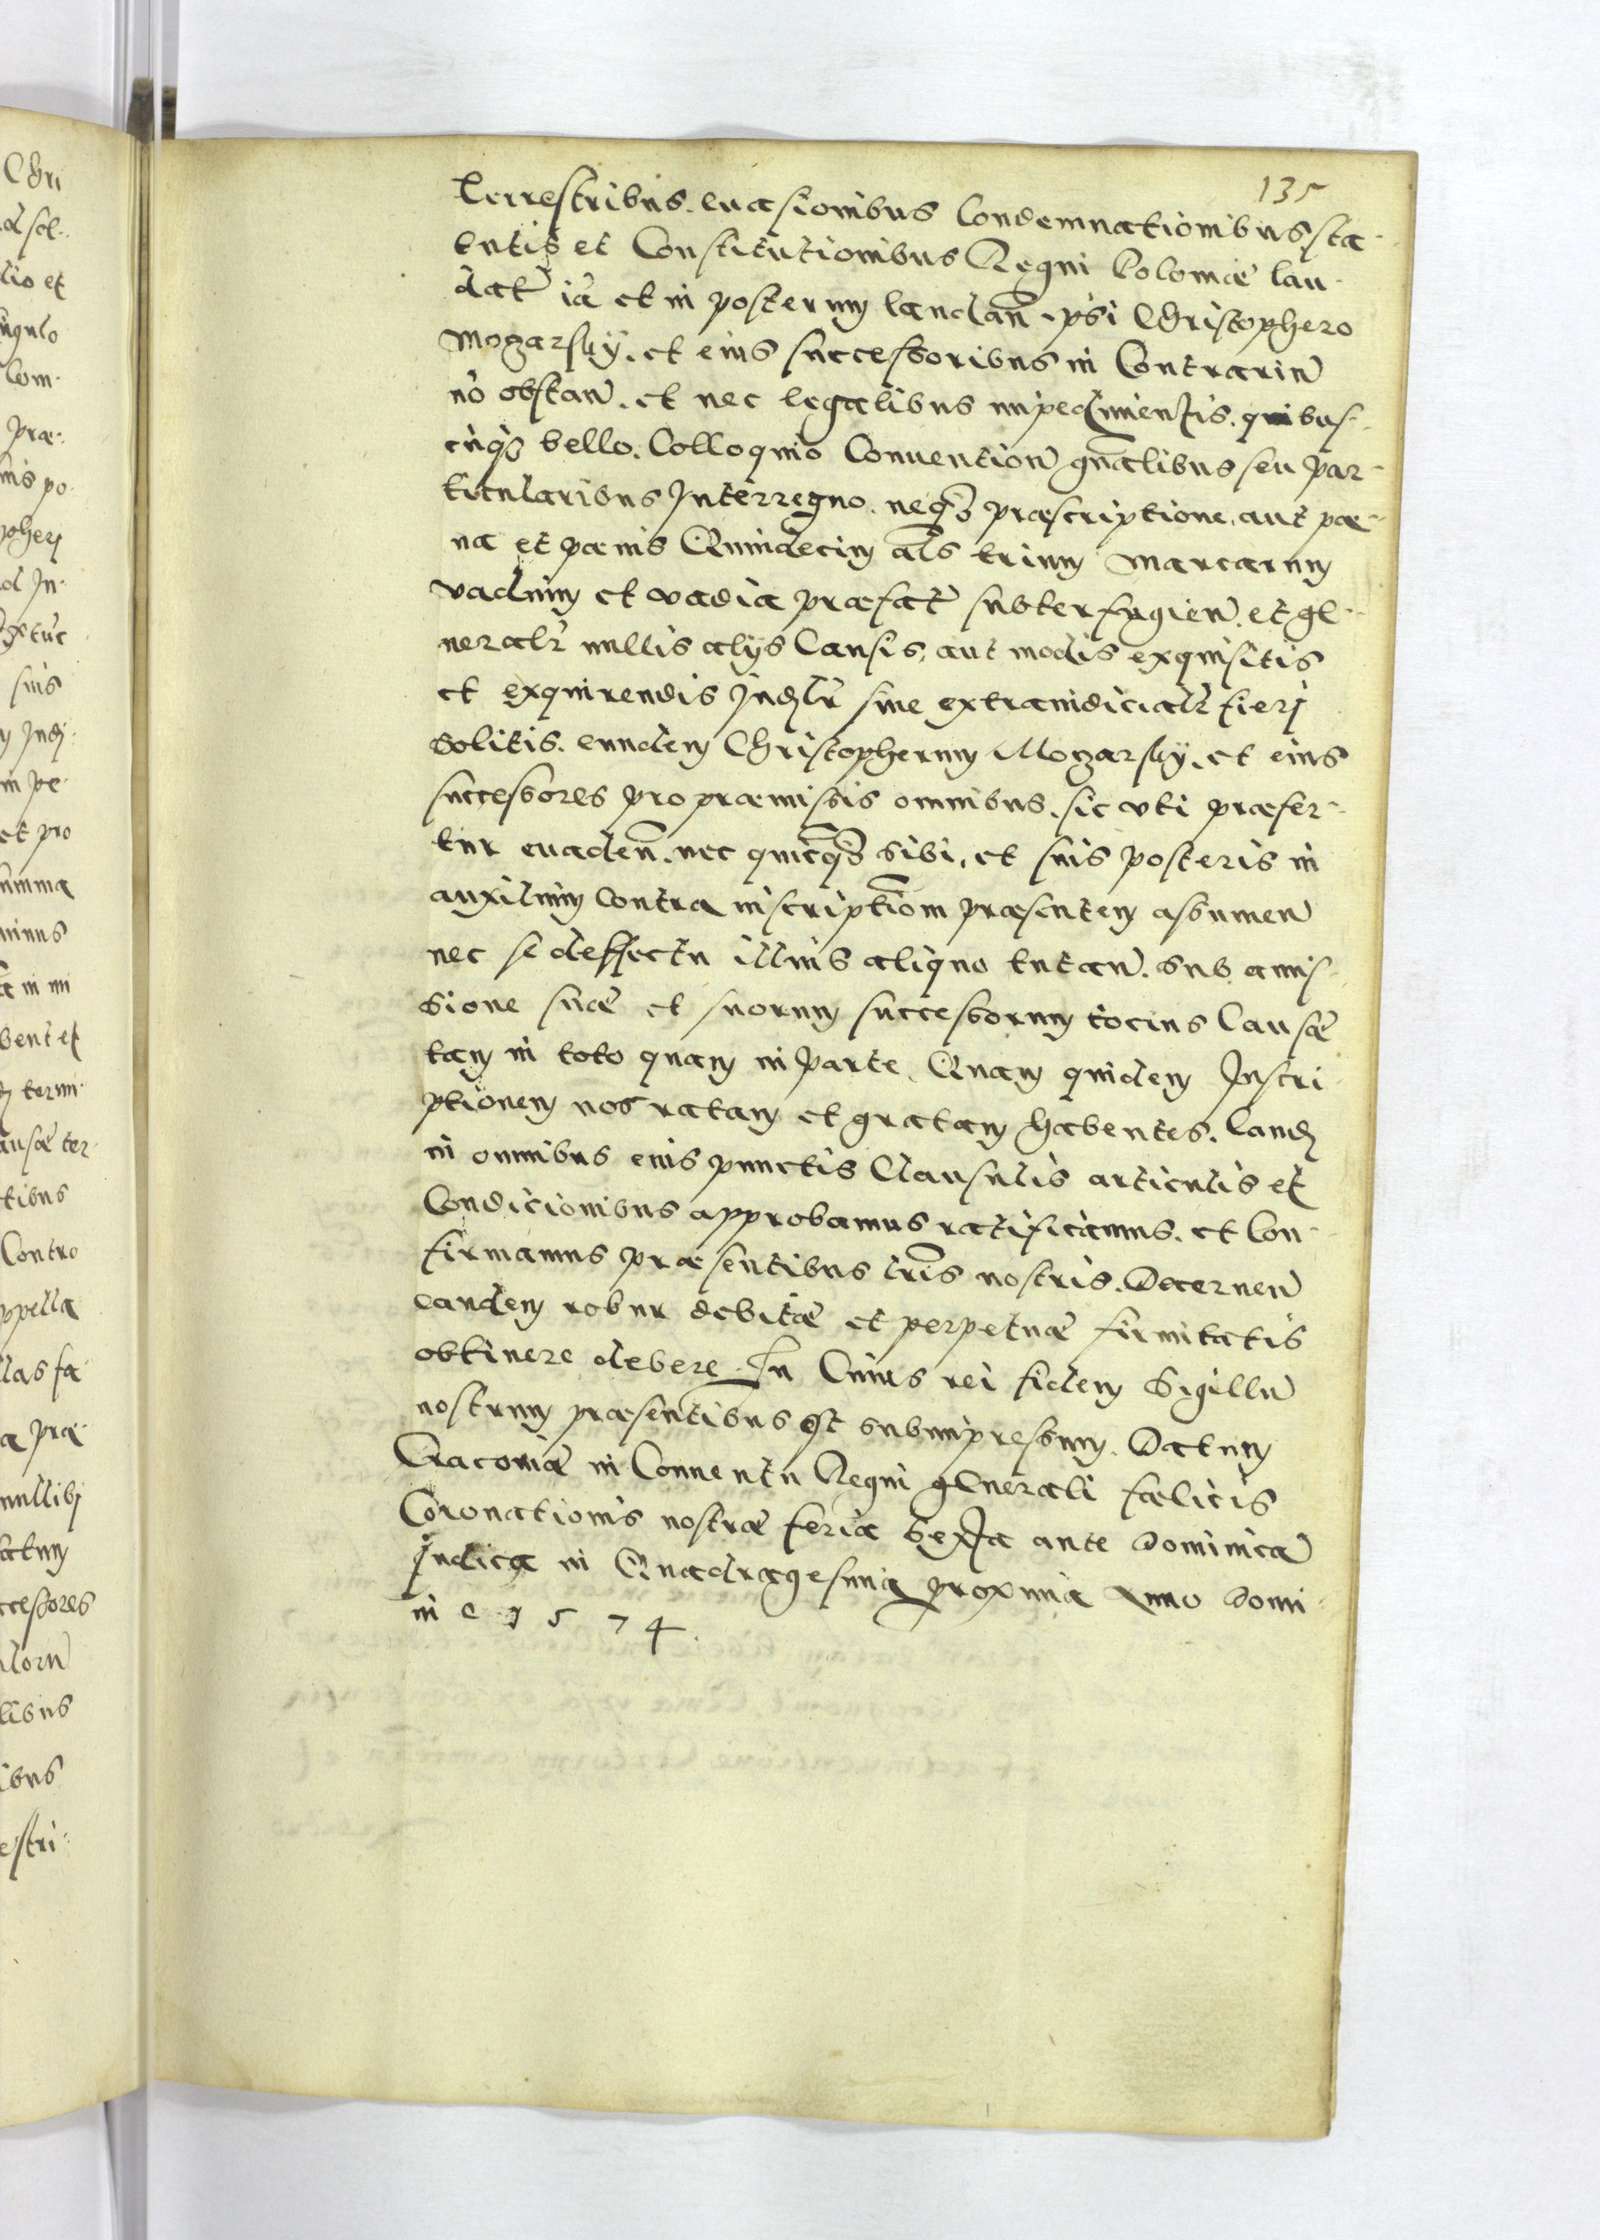 135
terrestribus. euasionibus Condemnationibus, sta-
tutis et Constitutionibus Regni Poloniæ lau-
dat iã et in posterum laudan̄. ipsi Christophero
Mozarsky. et eius successoribus in Contrariũ
nõ obstan̄. et nec legalibus impedimentis. quibus-
cũq3 bello. Colloquio Conuention̄ gñalibus seu par-
ticularibus Interregno. neq3 præscriptione, aut pæ-
na et pænis Quindecim als trium Marcarum
vadium et vadia præfat̄ subterfugien̄. et ge-
neralr nullis alijs Causis, aut modis exquisitis
et exquirendis Judlr siue extraiudicialr fieri
solitis. eundem Christopherum Mozarsky. et eius
successores pro præmissis omnibus. sic vti præfer-
tur euaden̄. nec quicq3 sibi, et suis posteris in
auxilium Contra inscriptiõm præsentem assumen̄
nec se deffectu illius aliquo tutan̄. Sub amis-
sione suæ et suorum successorum tocius Causæ
tam in toto quam in parte. Quam quidem Inscri-
ptionem nos ratam et gratam habentes. Eand
in omnibus eius punctis Clausulis articulis et
Condicionibus approbamus ratificamus. et Con-
firmamus præsentibus lris nostris. Decernen̄
eandem robur debitæ et perpetuæ firmitatis
obtinere debere. In Cuius rei fidem Sigillũ
nostrum præsentibus est subimpressum. Datum
Cracouiæ in Conuentu Regni generali fælicis
Coronationis nostræ feria Sexta ante Dominicã
Judica in Quadragesima proxima Anno Domi-
ni e 1 5 7 4.